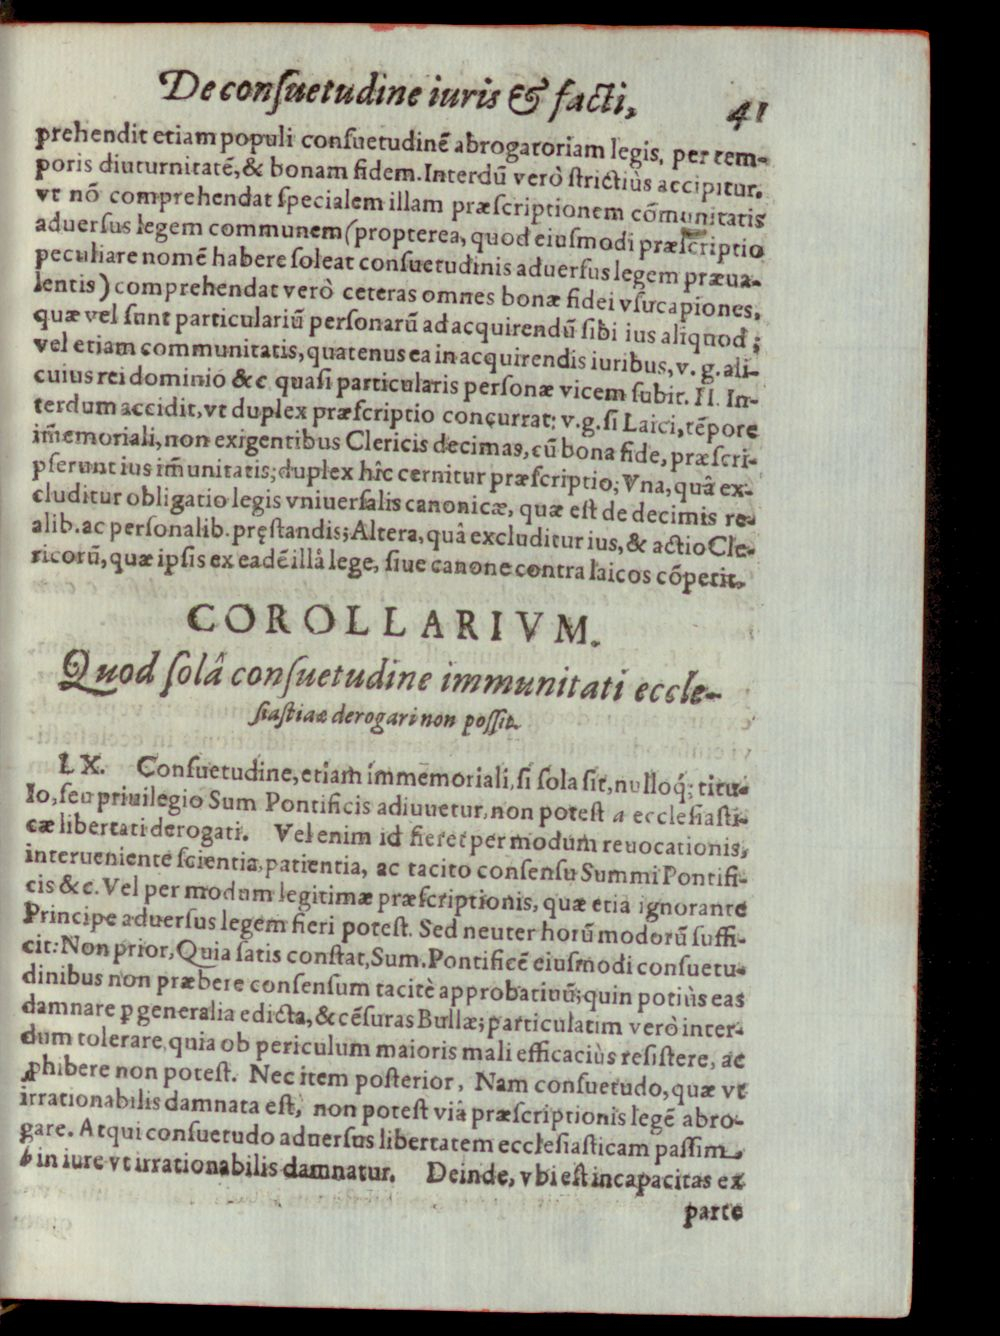 De consuetudine iuris & facti, 41
prehendit etiam populi consuetudinẽ abrogatoriam legis, per tem-
poris diuturnitatẽ, & bonam fidem. Interdũ verò strictiùs accipitur,
vt nõ comprehendat specialem illam præscriptionem cõmunitatis
aduersus legem communem (propterea, quod eiusmodi præscriptio
peculiare nomẽ habere soleat consuetudinis aduersus legem præua-
lentis) comprehendat verò ceteras omnes bonæ fidei vsucapiones,
quæ vel sunt particulariũ personarũ ad acquirendũ sibi ius aliquod;
vel etiam communitatis, quatenus ea in acquirendis iuribus, v. g. ali-
cuius rei dominio &c quasi particularis personæ vicem subit. II. In-
terdum accidit, vt duplex præscriptio concurrat: v. g. si Laici, tẽpore
im̃emoriali, non exigentibus Clericis decimas, cũ bona fide, præscri-
pserunt ius im̃unitatis; duplex hîc cernitur præscriptio; Vna, quâ ex-
cluditur obligatio legis vniuersalis canonicæ, quæ est de decimis re-
alib. ac personalib. pręstandis; Altera, quâ excluditur ius, & actio Cle-
ricorũ, quæ ipsis ex eadẽ illâ lege, siue canone contra laicos cõpetit.
COROLLARIVM.
Quod solâ consuetudine immunitati eccle-
siasticae derogari non possit.
LX. Consuetudine, etiam immemoriali, si sola sit, nulloq́; titu-
lo, seu priuilegio Sum Pontificis adiuuetur, non potest a ecclesiasti-
cæ libertati derogati. Vel enim id fieret per modum reuocationis,
interueniente scientia, patientia, ac tacito consensu Summi Pontifi-
cis &c. Vel per modum legitimæ præscriptionis, quæ etiã ignorante
Principe aduersus legem fieri potest. Sed neuter horũ modorũ suffi-
cit: Non prior, Quia satis constat, Sum. Pontificẽ eiusmodi consuetu-
dinibus non præbere consensum tacitè approbatiuũ; quin potiùs eas
damnare ꝑ generalia edicta, & cẽsuras Bullæ; particulatim verò inter-
dum tolerare, quia ob periculum maioris mali efficaciùs resistere, ac
ꝓhibere non potest. Nec item posterior, Nam consuetudo, quæ vt
irrationabilis damnata est, non potest viâ præscriptionis legẽ abro-
gare. Atqui consuetudo aduersus libertatem ecclesiasticam passim
b in iure vt irrationabilis damnatur. Deinde, vbi est incapacitas ex
parte